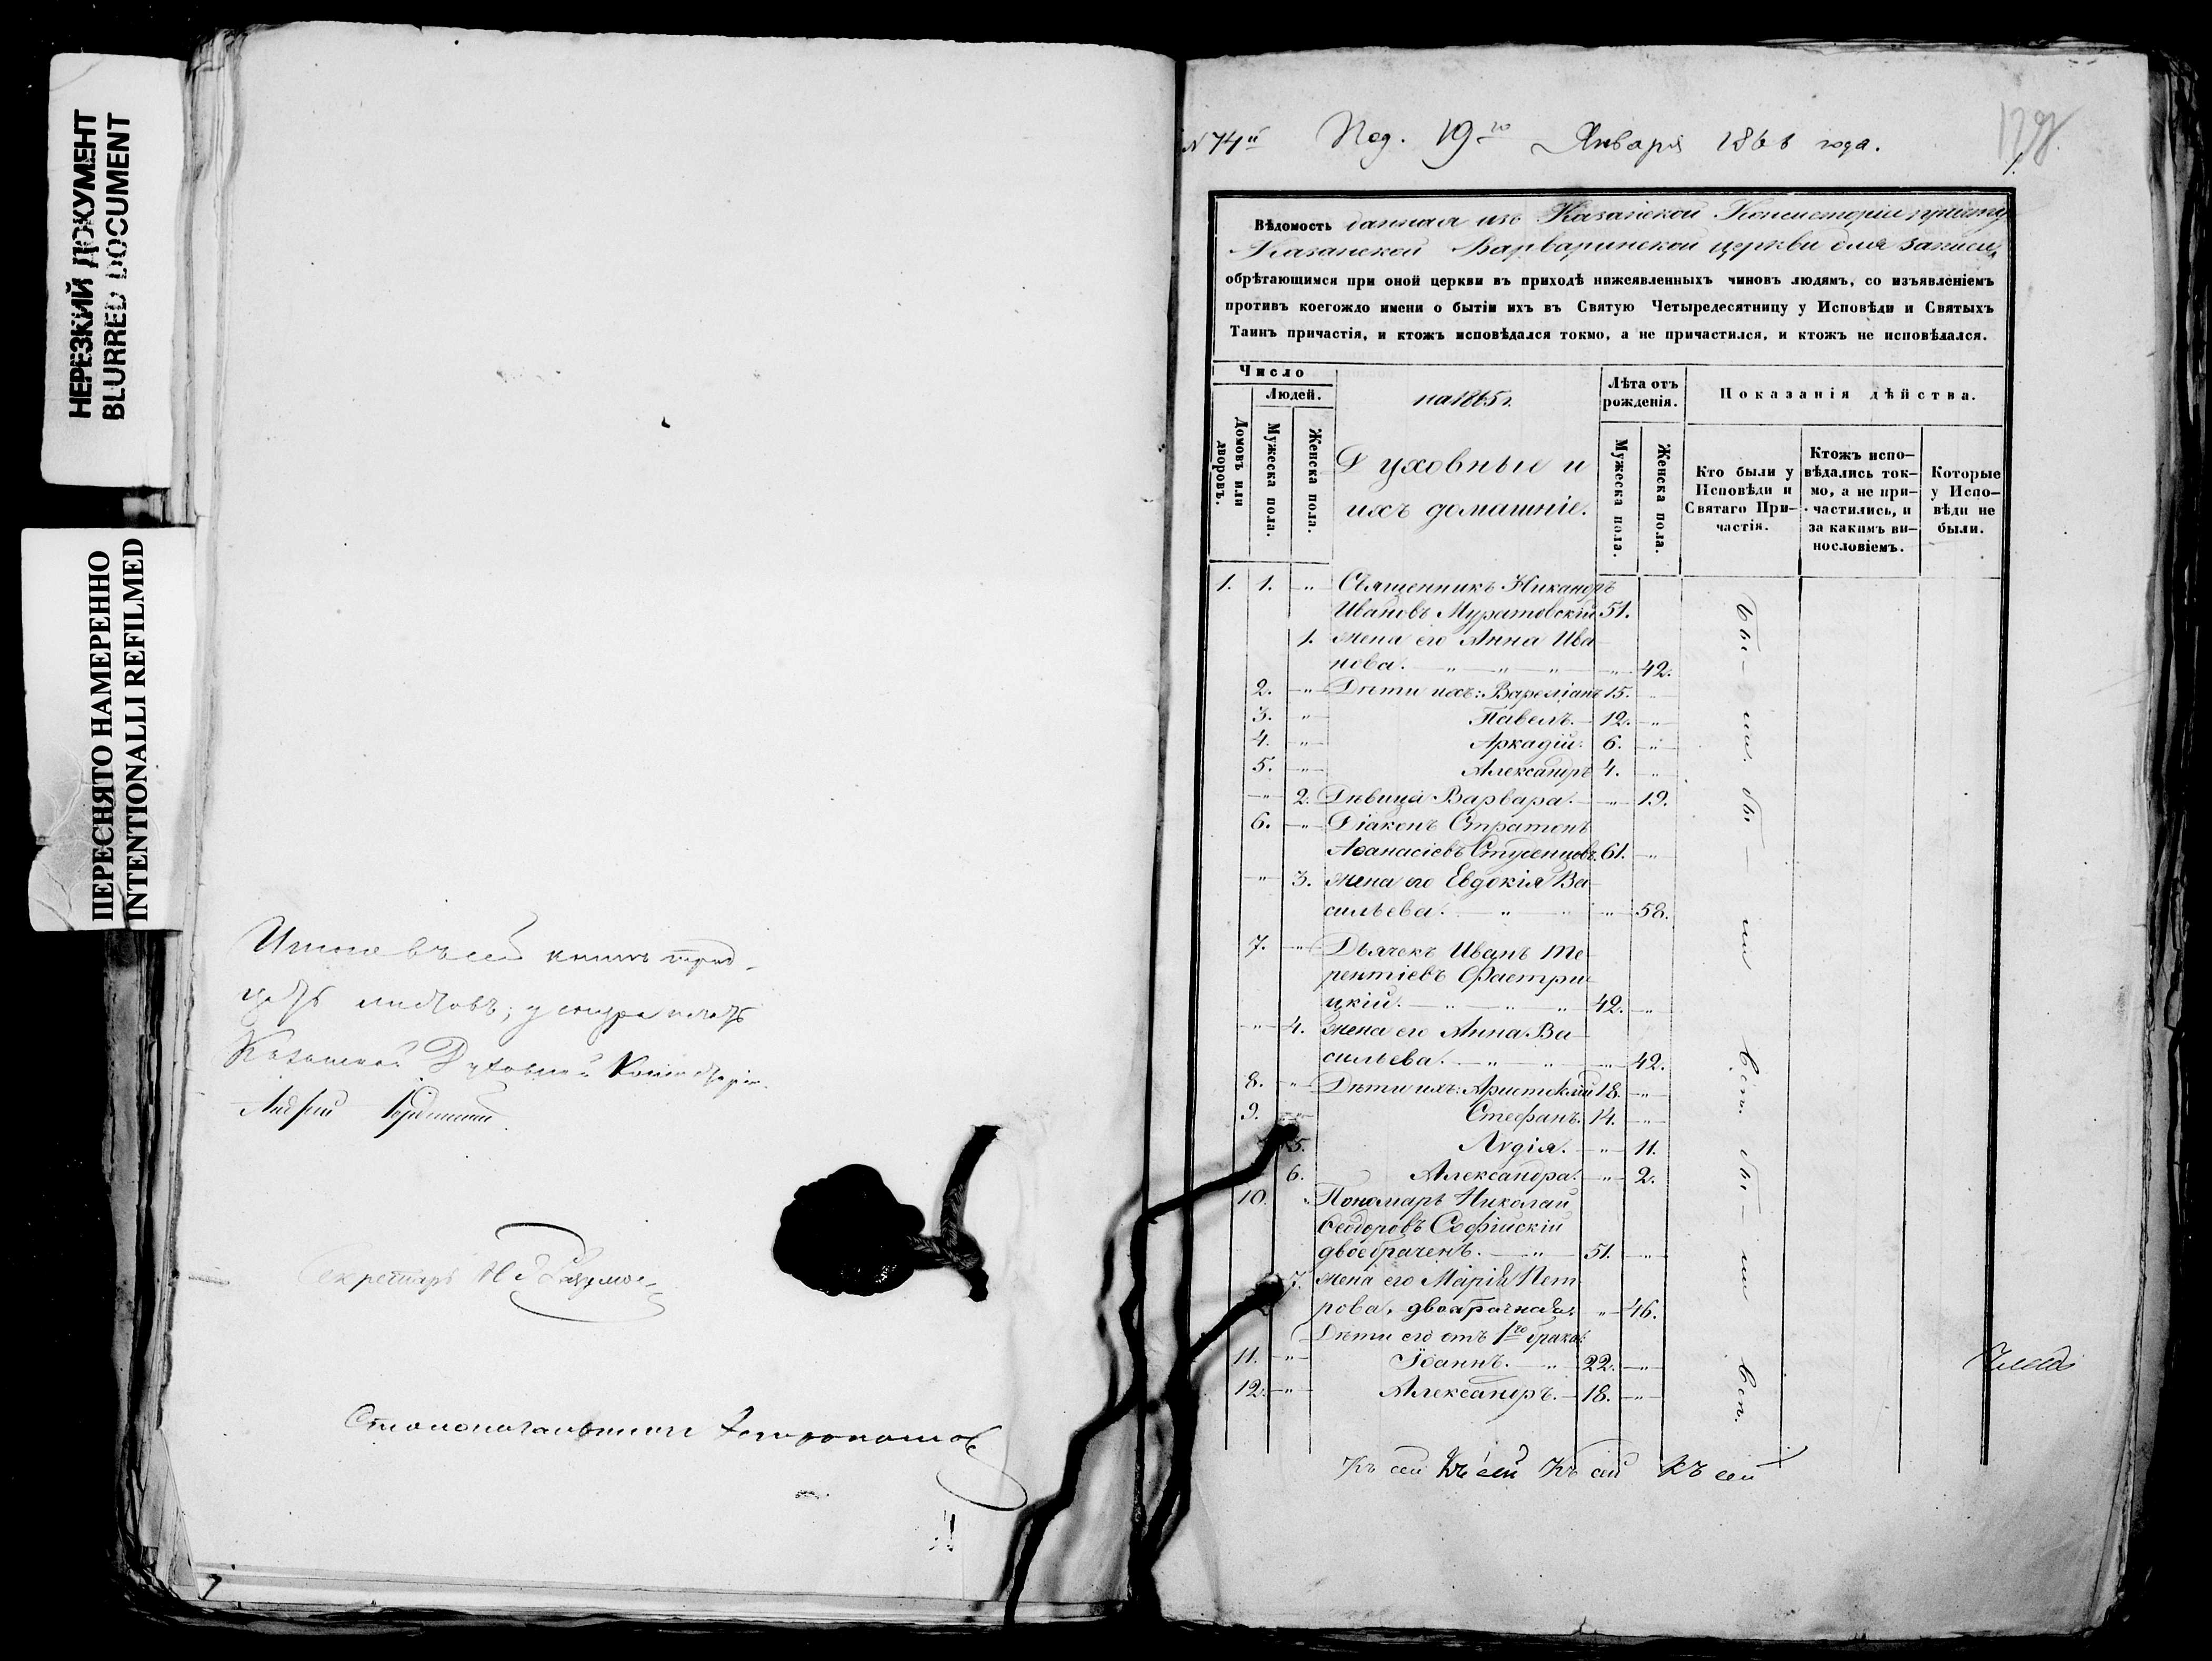 НЕРЕЗКИЙ ДОКУМЕНТ
BLURRED DOCUMENT
ПЕРЕСНЯТО НАМЕРЕННО
INTENTIONALLI REFILMED
Итого въ сей книгѣ трид-
цать листовъ; у снура печать
Казанской Духовной Консисторіи.
Секретарь
Столоначальникъ
N 74й Под. 19го Января 1866 года.
Вѣдомость данная изъ Казанской Консисторіи причту
Казанской Варваринской церкви для записи
обрѣтающимся при оной церкви въ приходѣ нижеявленныхъ чиновъ людямъ, со изъявленіемъ
противъ коегождо имени о бытіи ихъ въ Святую Четыредесятницу у Исповѣди и Святыхъ
Таинъ причастія, и ктожъ исповѣдался токмо, а не причастился, и ктожъ не исповѣдался.
Число
Людей.
Домовъ или дворовъ.
Мужеска пола.
Женска пола.
на 1865 г.
Духовные и
ихъ домашніе.
Лѣта отъ
рожденія.
Мужеска пола.
Женска пола.
Показанія дѣйства.
Кто были у
Исповѣди и
Святаго При-
частія.
Ктожъ испо-
вѣдались ток-
мо, а не при-
частились, и
за какимъ ви-
нословіемъ.
Которые
у Испо-
вѣди не
были.
1. 1. " Священникъ Никандръ
Ивановъ Муратовскій 51.
1. жена его Анна Ива
нова. " " " " 42.
2. " Дѣти ихъ: Валеріанъ 15. "
3. " Павелъ. 12. "
4. " Аркадій. 6. "
5. " Александръ 4. "
" 2. Дѣвица Варвара. " 19.
6. " Діаконъ Стратонъ
Аѳанасіевъ Студенцовъ. 61. "
" 3. жена его Евдокія Ва
сильева. " " " 58.
7. " Дьячекъ Иванъ Те
рентіевъ Фастри
цкій. " " 42. "
" 4. жена его Анна Ва
сильева. " " " 42.
8. " Дѣти ихъ: Аристоклій 18. "
9. " Стефанъ. 14. "
5. Лидія. " 11.
6. Александра. " 2.
10. " Пономарь Николай
Ѳеодоровъ Софійскій
двоебраченъ. " 51. "
7. жена его Марія Пет
рова, двоебрачная. " 46.
Дѣти его отъ 1го брака:
11. " Іоаннъ. " 22. "
12. " Александръ. 18. "
Къ сей Къ сей Къ сей Къ сей